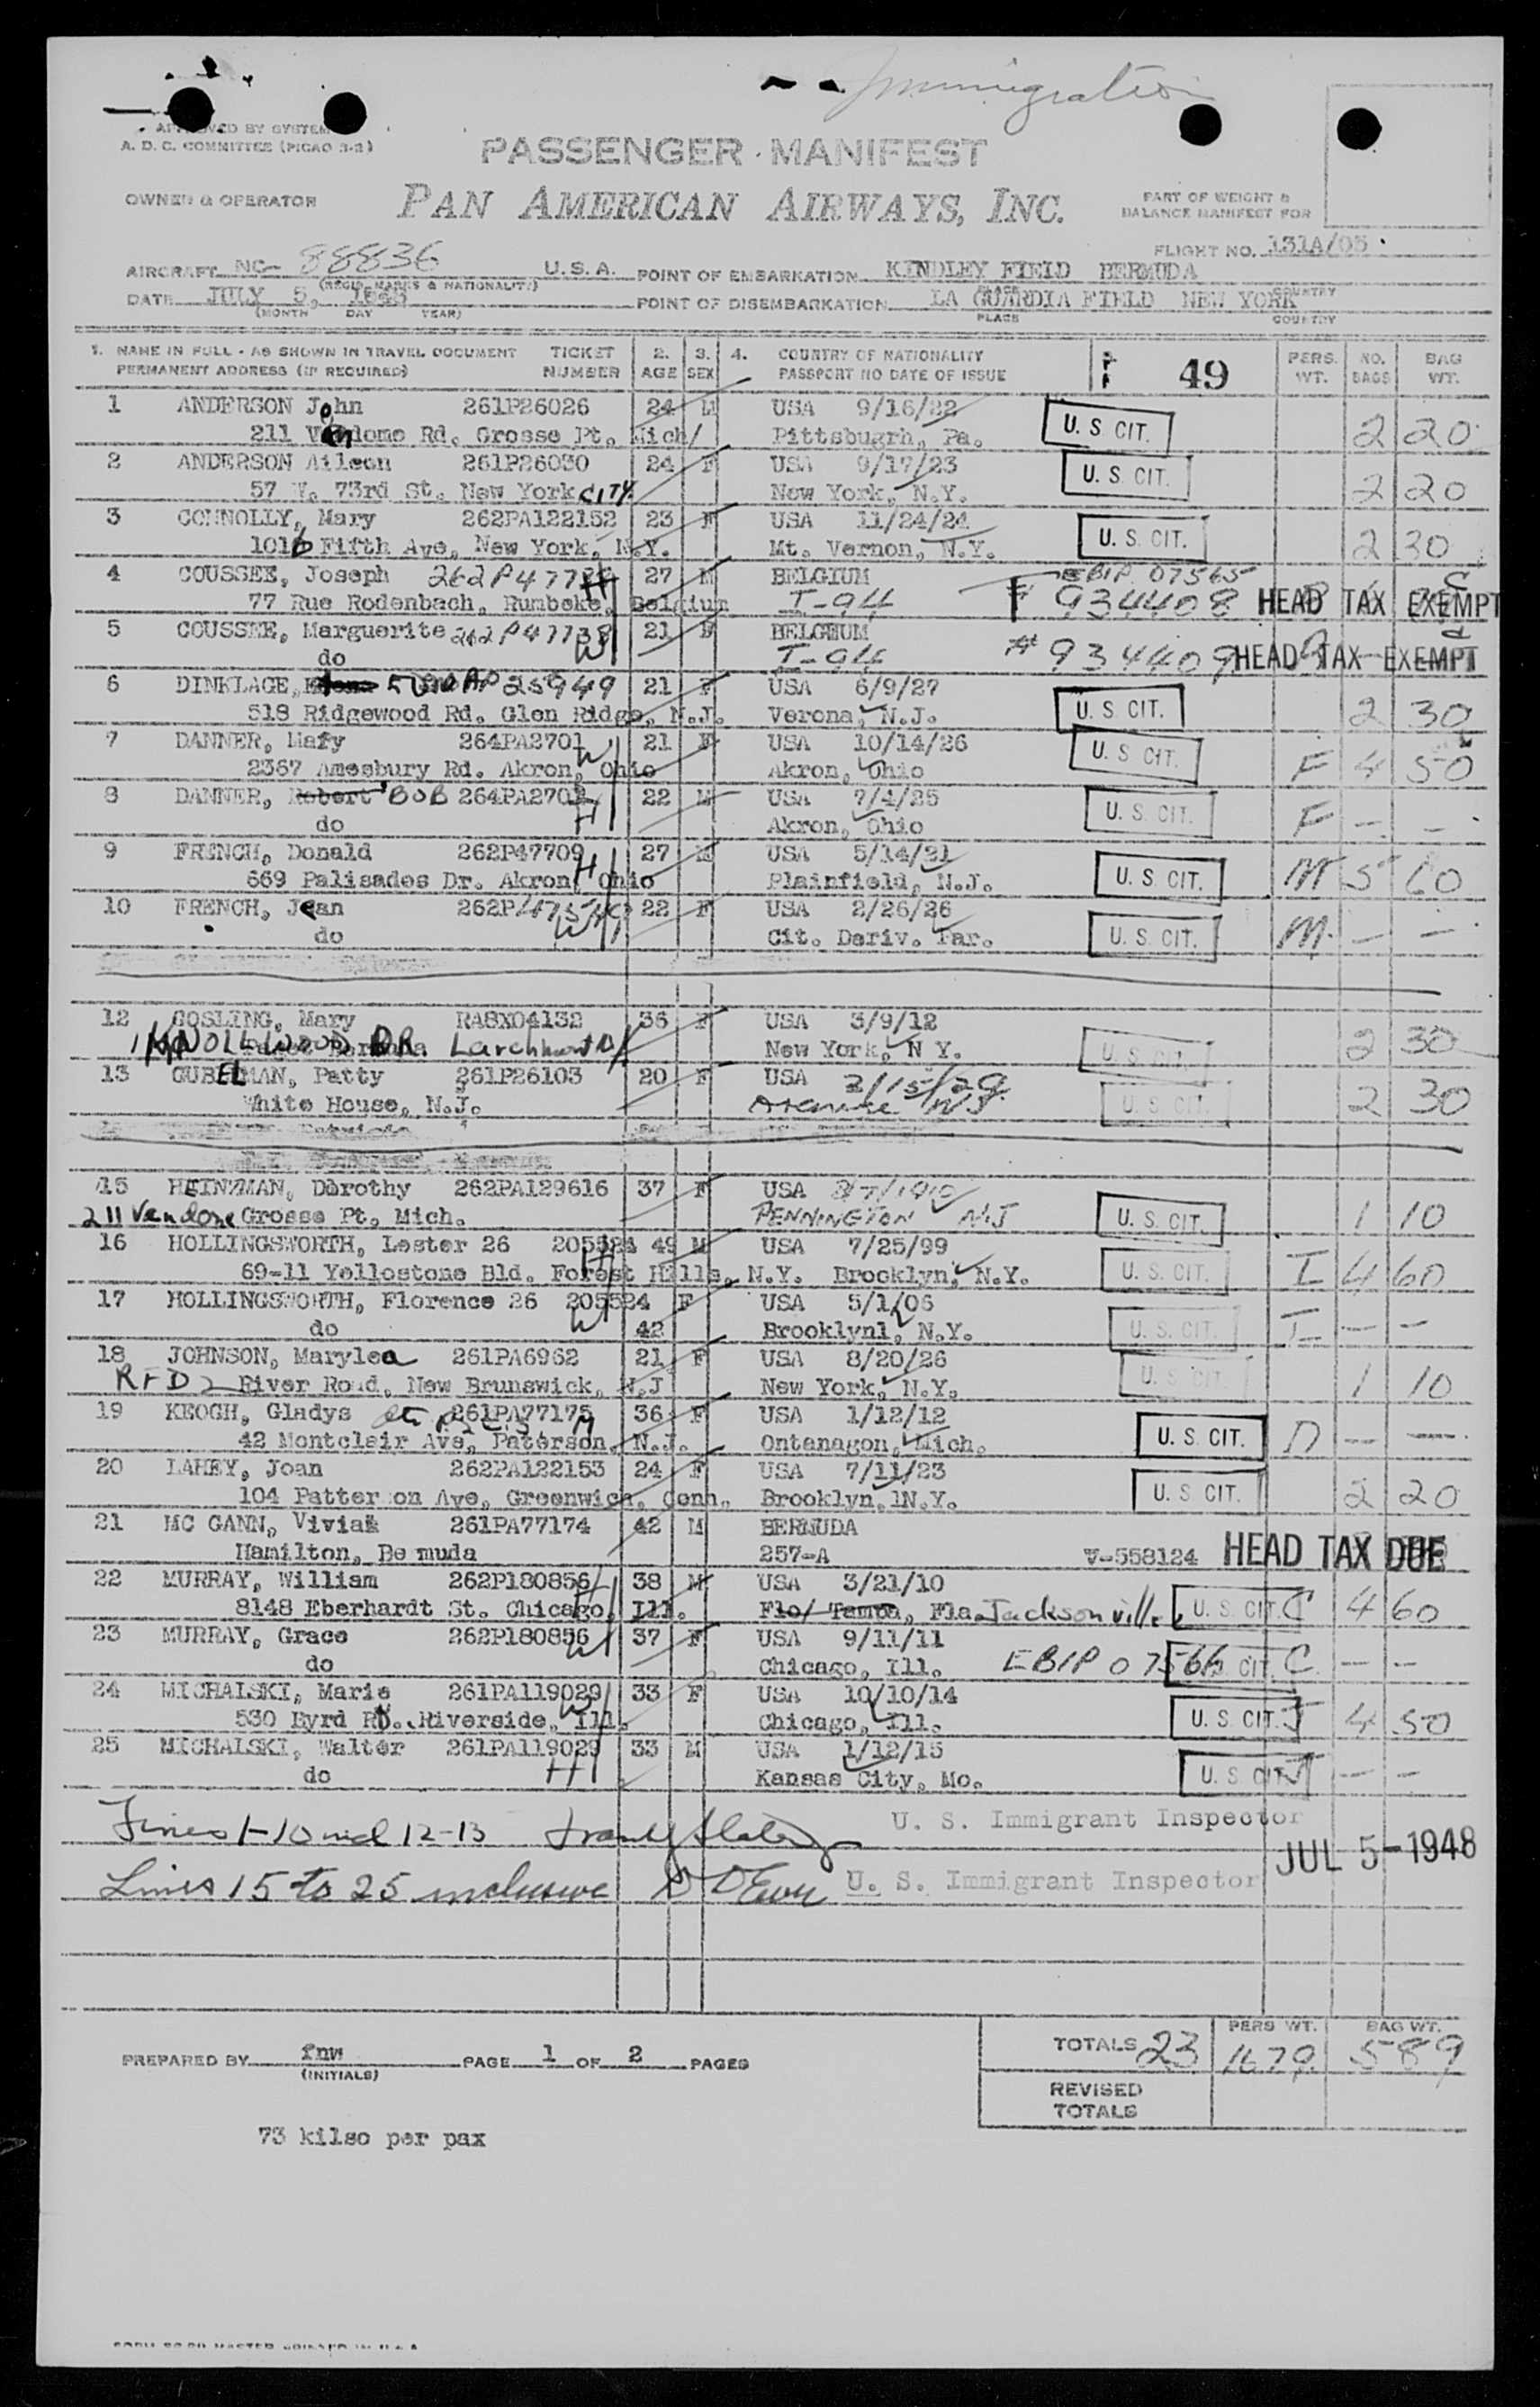 Immigration
APPROVED BY SYSTEM
A. D. C. COMMITTEE (PICAO 3-2)
PASSENGER MANIFEST
OWNER & OPERATOR PAN AMERICAN AIRWAYS, INC. PART OF WEIGHT &
BALANCE MANIFEST FOR
FLIGHT NO. 131A/05
AIRCRAFT NC- 88836 U.S.A. POINT OF EMBARKATION KINDLEY FIELD BERMUDA
(REGIS. MARKS & NATIONALITY) PLACE COUNTRY
DATE JULY 5, 1948 POINT OF DISEMBARKATION LA GUARDIA FIELD NEW YORK
(MONTH DAY YEAR) PLACE COUNTRY
1. NAME IN FULL - AS SHOWN IN TRAVEL DOCUMENT TICKET 2. 3. 4. COUNTRY OF NATIONALITY 49 PERS. NO. BAG
PERMANENT ADDRESS (IF REQUIRED) NUMBER AGE SEX PASSPORT NO DATE OF ISSUE WT. BAGS WT.
1 ANDERSON John 261P26026 24 M USA 9/16/22 U. S CIT. 2 20
211 Vendome Rd. Grosse Pt. Mich/ Pittsbugrh, Pa.
2 ANDERSON Aileen 261P26030 24 F USA 9/17/23 U. S. CIT. 2 20
57 W. 73rd St. New York CITY New York, N.Y.
3 CONNOLLY, Mary 262PA122152 23 F USA 11/24/24 U. S. CIT. 2 30
1016 Fifth Ave, New York, N.Y. Mt. Vernon, N.Y.
4 COUSSEE, Joseph 262P47738 H 27 M BELGIUM EBIP 07565 C
77 Rue Rodenbach, Rumbeke, Belgium I-94 # 934408 HEAD TAX EXEMPT
5 COUSSEE, Marguerite 262P47738 W 21 F BELGIUM
do I-94 # 934409 HEAD TAX EXEMPT
6 DINKLAGE, 25949 21 F USA 6/9/27 U. S. CIT. 2 30
518 Ridgewood Rd. Glen Ridge, N.J. Verona, N.J.
7 DANNER, Mary 264PA2701 W 21 F USA 10/14/26 U. S CIT. F 4 50
2367 Amesbury Rd. Akron, Ohio Akron, Ohio
8 DANNER, Robert BOB 264PA2701 H 22 M USA 7/4/25 U. S. CIT. F — —
do Akron, Ohio
9 FRENCH, Donald 262P47709 H 27 M USA 5/14/21 U. S. CIT. M 5 60
669 Palisades Dr. Akron, Ohio Plainfield, N.J.
10 FRENCH, Jean 262P W 22 F USA 2/26/26 U. S. CIT. M — —
do Cit. Deriv. Par.
12 GOSLING, Mary RA8X04132 36 F USA 3/9/12 U. S. CIT. 2 30
KNOLLWOOD DR. Larchmont New York, N Y.
13 GUBELMAN, Patty 261P26103 20 F USA 2/15/29 U. S. CIT. 2 30
White House, N.J. N J
15 HEINZMAN, Dorothy 262PA129616 37 F USA 8/7/1910 U. S. CIT. 1 10
211 Vendome Grosse Pt. Mich. PENNINGTON N.J
16 HOLLINGSWORTH, Lester 26 205524 H 49 M USA 7/25/99 U. S. CIT. I 4 60
69-11 Yellostone Bld. Forest Hills, N.Y. Brooklyn, N.Y.
17 HOLLINGSWORTH, Florence 26 205524 W F USA 5/1/06 U. S. CIT. I — —
do 42 Brooklynl, N.Y.
18 JOHNSON, Marylea 261PA6962 21 F USA 8/20/26 U. S. CIT. 1 10
RFD 2 River Road, New Brunswick, N.J New York, N.Y.
19 KEOGH, Gladys 261PA77175 36 F USA 1/12/12 U. S. CIT. D — —
42 Montclair Ave, Paterson, N.J. Ontanagon, Mich.
20 LAHEY, Joan 262PA122153 24 F USA 7/11/23 U. S CIT. 2 20
104 Patter on Ave, Greenwich, Conn. Brooklyn, lN.Y.
21 MC GANN, Vivian 261PA77174 42 M BERMUDA
Hamilton, Be muda 257-A V-558124 HEAD TAX DUE
22 MURRAY, William 262P180856 H 38 M USA 3/21/10 U. S. CIT. C 4 60
8148 Eberhardt St. Chicago, Ill. Flo/ Tampa, Fla. Jacksonville
23 MURRAY, Grace 262P180856 W 37 F USA 9/11/11
do Chicago, Ill. EBIP 07566 U. S. CIT. C — —
24 MICHALSKI, Marie 261PA119029 W 33 F USA 10/10/14 U. S. CIT. J 4 50
530 Byrd RD. Riverside, Ill. Chicago, Ill.
25 MICHALSKI, Walter 261PA119029 H 33 M USA 1/12/15 U. S. CIT. J — —
do Kansas City, Mo.
Lines 1-10 and 12-13 U. S. Immigrant Inspector
JUL 5-1948
Lines 15 to 25 inclusive U. S. Immigrant Inspector
PREPARED BY fnw PAGE 1 OF 2 PAGES
(INITIALS)
PERS WT. BAG WT.
TOTALS 23 1679 589
REVISED
TOTALS
73 kilso per pax